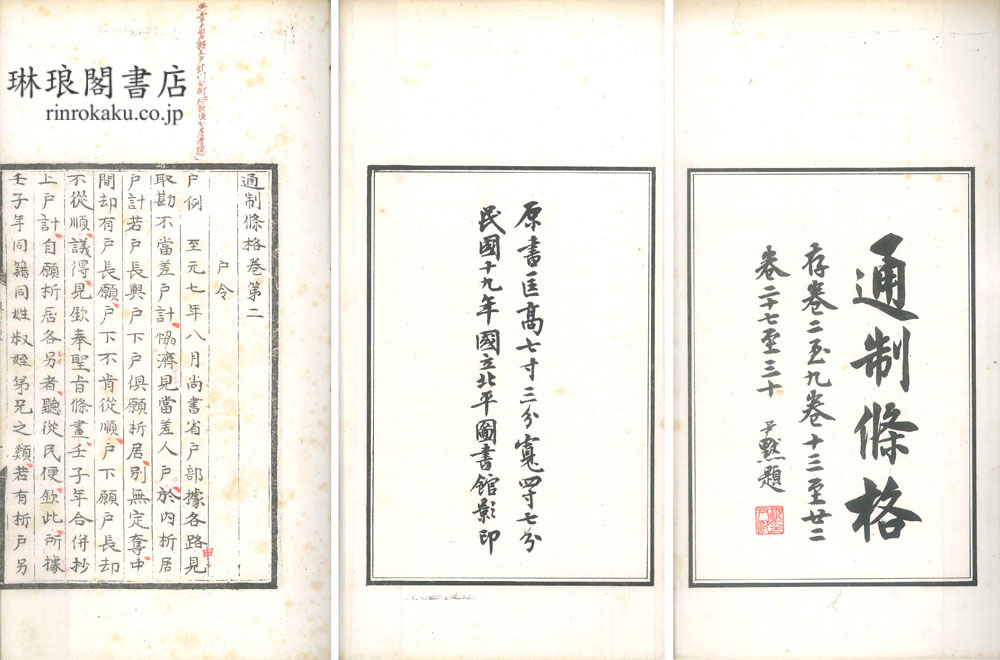 通制條格
存卷二至九卷十三至廿二
卷二十七至三十 尹默題
原書匡高七寸三分寬四寸七分
民國十九年國立北平圖書館影印
琳琅閣書店
rinrokaku.co.jp
通制條格卷第二
户令
户例 至元七年八月尚書省户部據各路見
取勘不當差户計恊濟見當差人户於内析居
户計若户長與户下户俱願析居别無定奪中
間却有户長願户下不肯從順户下願户長却
不從順議得見欽奉聖旨條畫壬子年合併抄
上户計自願析居各另者聽從民便欽此所據
壬子年同籍同姓叔姪弟兄之類若有析户另
申